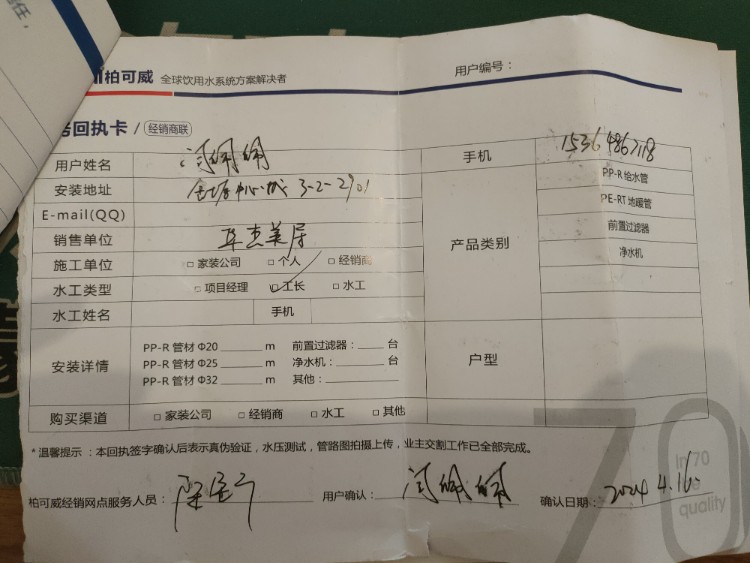 柏可威 全球饮用水系统方案解决者
用户编号：
回执卡 / 经销商联
用户姓名 闫姵姵 手机 15364867118
安装地址 3-2-2901 PP-R 给水管
E-mail(QQ) PE-RT 地暖管
销售单位 华杰美居 产品类别 前置过滤器
施工单位 □ 家装公司 □ 个人 □ 经销商 净水机
水工类型 □ 项目经理 □ 工长 □ 水工
水工姓名 手机
安装详情 户型
PP-R 管材 Φ20 ______ m 前置过滤器：____ 台
PP-R 管材 Φ25 ______ m 净水机：____ 台
PP-R 管材 Φ32 ______ m 其他：
购买渠道 □ 家装公司 □ 经销商 □ 水工 □ 其他
70
*温馨提示：本回执签字确认后表示真伪验证，水压测试，管路图拍摄上传，业主交割工作已全部完成。
in 70
quality
柏可威经销网点服务人员： 用户确认：闫姵姵 确认日期：2024.4.16